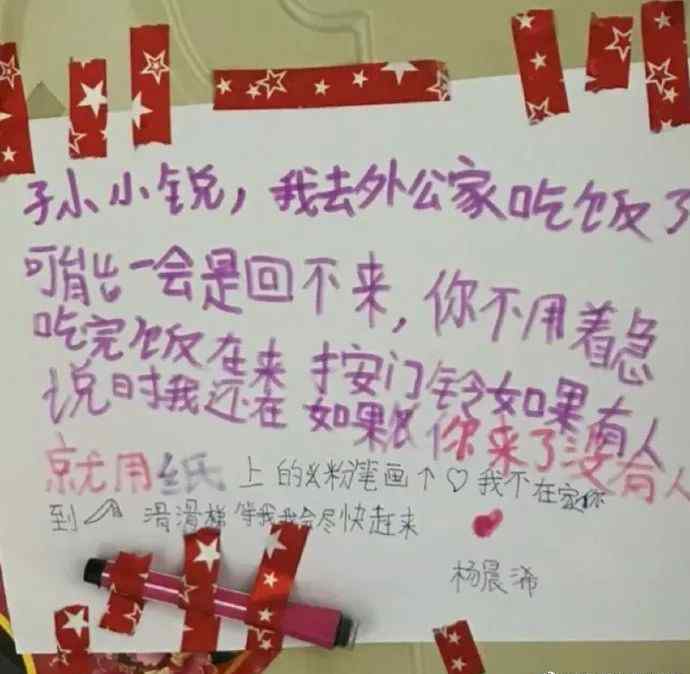 孙小锐，我去外公家吃饭了
可能一会是回不来，你不用着急
吃完饭在来 按门铃如果有人
说时我还在 如果 你来了没有人
就用纸 上的 粉笔画↑♡我不在 你
到 滑滑梯 等我我会尽快赶来
杨晨浠